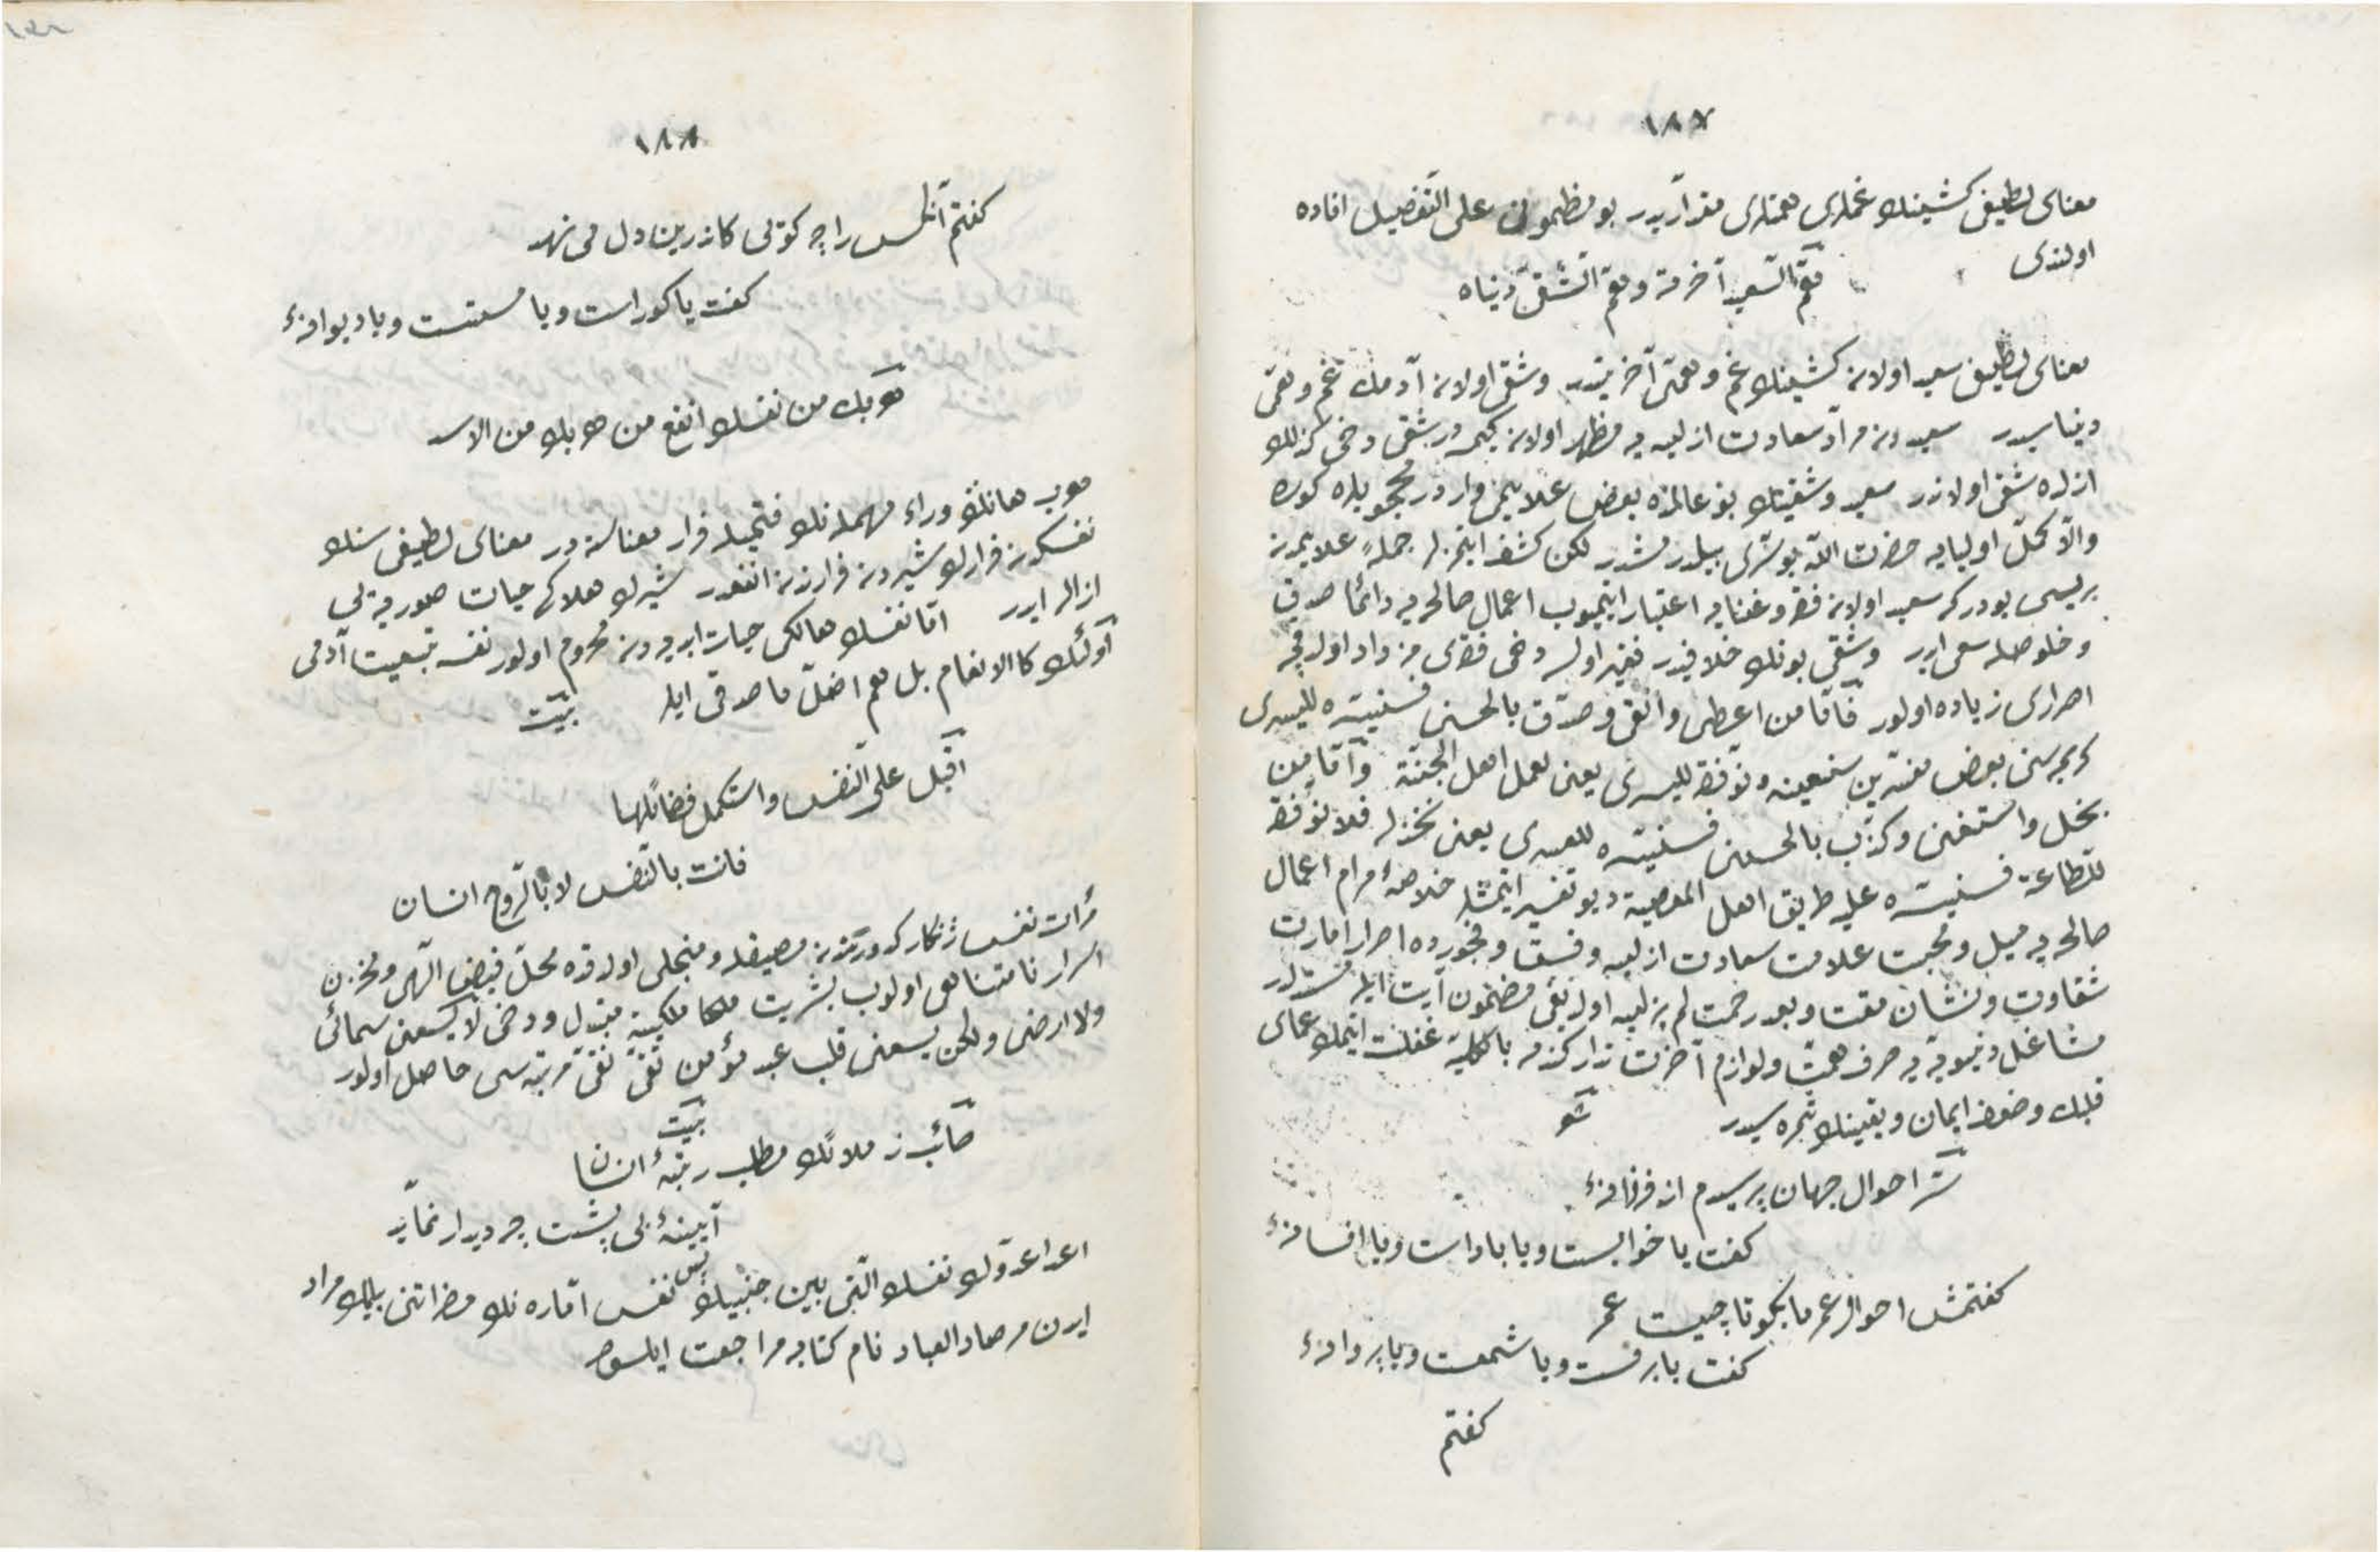 ١٨٧
معنای لطیفی کشینك غملری همتلری مقداریدر بو مظمون علی التفصیل افاده
اولندی
همّ السعید آخرته وهمّ الشقیّ دنیاه
معنای لطیفی سعید اولان کشینك غم وهمتی آخرتیدر وشقی اولان آدمك غم وهمی
دنیاسیدر سعیددن مراد سعادت ازلیه یه مظهر اولان کیمسه در شقی دخی کذلك
ازلده شقی اولاندر سعید وشقینك بو عالمده بعض علایمی واردر محجوبلره کوره
والّا کمّل اولیایه حضرت الله بو سرّی بیلدرمشدر لکن کشف ایتمزلر جملهٔ علایمدن
بریسی بودر که سعید اولان فقر وغنایه اعتبار ایتمیوب اعمال صالحه یه دائما صدق
وخلوصله سعی ایدر وشقی بونك خلافیدر فقیر اولسه دخی فقری مزداد اولدقجه
اصراری زیاده اولور فامّا من اعطی واتقی وصدّق بالحسنی فسنیسّره للیسری
کریمه سنی بعض مفسرین سنعینه ونوفقه للیسری یعنی لعمل اهل الجنّة وامّا من
بخل واستغنی وکذّب بالحسنی فسنیسّره للعسری یعنی نخذله فلا نوفقه
للطاعة فسنیسّره علیه طریق اهل المعصیة دیو تفسیر ایتمشلر خلاصهٔ مرام اعمال
صالحه یه میل ومحبت علامت سعادت ازلیه وفسق وفجورده اصرار امارت
شقاوت ونشان مقت وبعد رحمت لم یزلیه اولدیغی مضمون آیت ایله مستدلدر
مشاغل دنیویّه یه صرف همّت ولوازم آخرت تدارکنده بالکلیّه غفلت ایتمك عمای
قلبك وضعف ایمان ویقینك ثمره سیدر شعر
سرّ احوال جهان پرسیدم از فرزانهٔ
کفت یا خوابست ویا باداست ویا افسانهٔ
کفتمش احوال عمر ما بکو تا چیست عمر
کفت یا برقست ویا شمعست ویا پروانهٔ
کفتم
١٨٨
کفتم آنکس را چه کوئی کاندرین دل می نهد
کفت یا کوراست ویا مستست ویا دیوانهٔ
هربك من نفسك انفع من هربك من الاسد
هرب هانك وراء مهمله نك فتحیله فرار معناسنه در معنای لطیفی سنك
نفسکدن فرارك شیردن فرارندن انفعدر شیرك هلاکی حیات صوریه یی
ازاله ایدر امّا نفسك هالکی حیات ابدیه دن محروم اولور نفسه تبعیت آدمی
اولئك کالانعام بل هم اضلّ ما صدقی ایله بیت
اقبل علی النفس واستکمل فضائلها
فانت بالنفس لا بالروح انسان
مرآت نفس ژنکار کدورتدن مصیقل ومنجلی اولدقده محلّ فیض الهی ومخزن
اسرار نامتناهی اولوب بشریت ملکا ملکیّته مبتدل ودخی لا یسعنی سمائی
ولا ارضی ولکن یسعنی قلب عبد مؤمن تقی نقی مرتبه سی حاصل اولور
بیت
صائب ز ملائك مطلب رتبهٔ انسان
آیینهٔ بی پشت چه دیدار نماید
اعدا عدوّك نفسك الّتی بین جنبیك پس نفس امّاره نك مضراتنی بیلمك مراد
ایدن مرصاد العباد نام کتابه مراجعت ایلسون